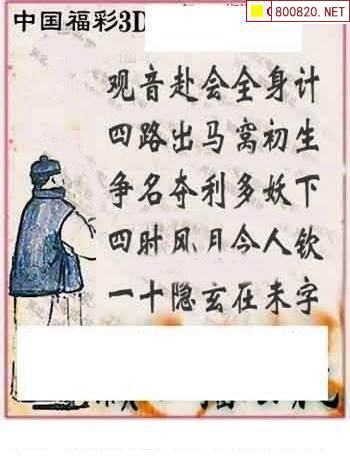 中国福彩3D
800820.NET
观音赴会全身计
四路出马窝初生
争名夺利多妖下
四时风月今人钦
一十隐玄在未字